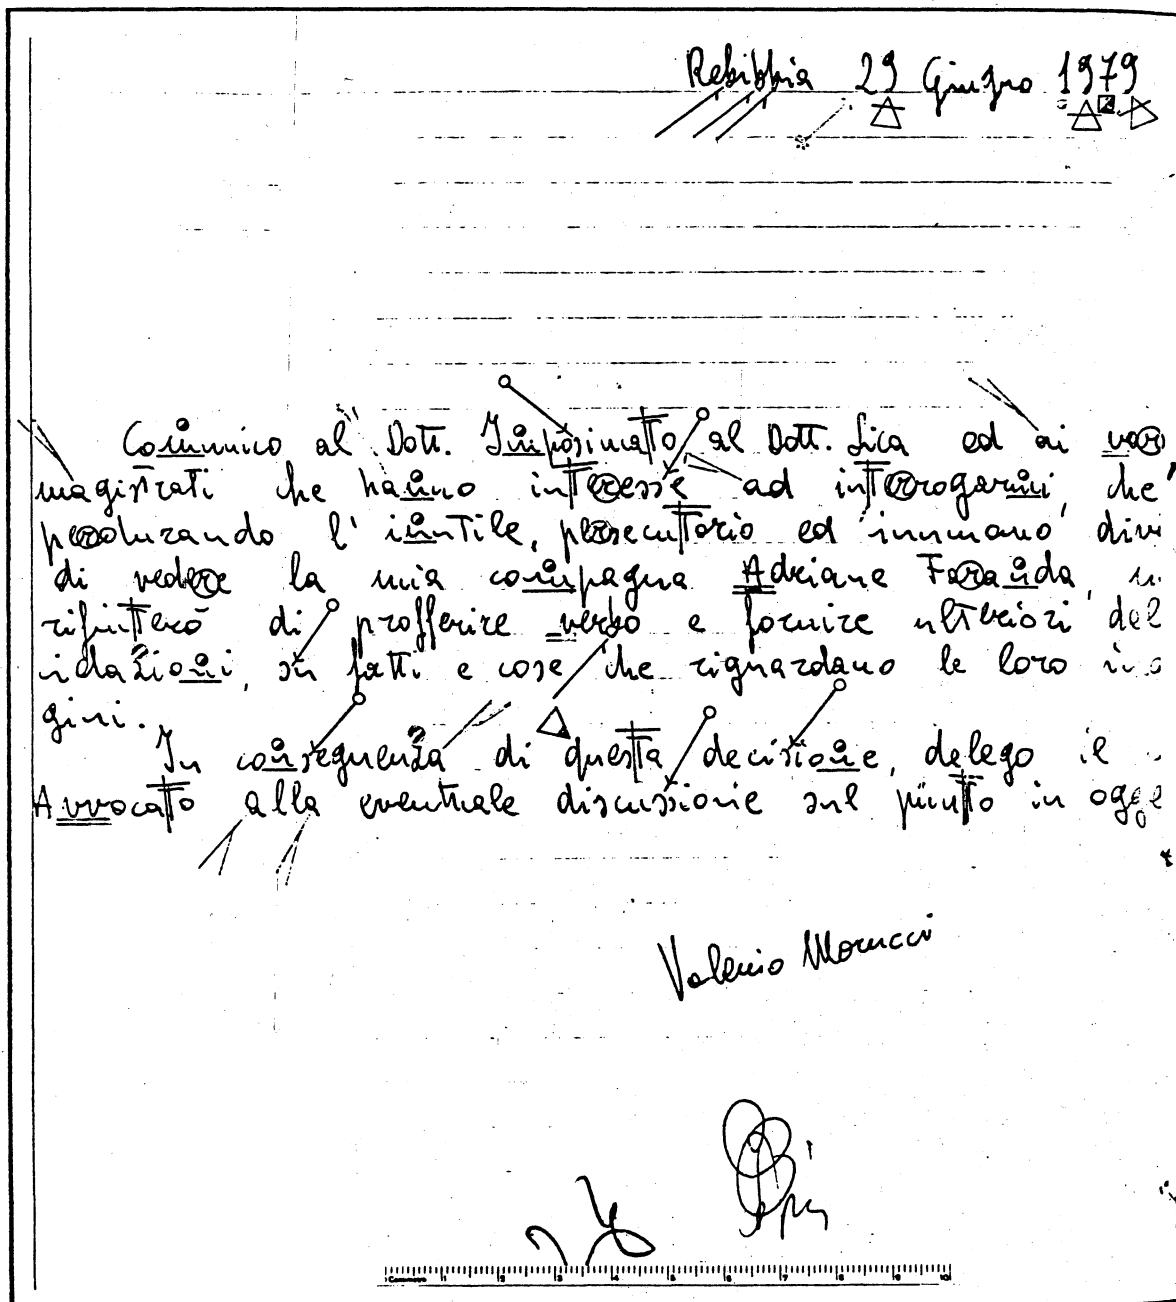 Rebibbia 29 Giugno 1979
Comunico al Dott. Imposimato, al Dott. Sica ed ai var
magistrati che hanno interesse ad interrogarmi, che
perdurando l'inutile, persecutorio ed inumano divi
di vedere la mia compagna Adriana Faranda, mi
rifiuterò di profferire verbo e fornire ulteriori del
sui fatti e cose che riguardano le loro
gini.
In conseguenza di questa decisione, delego il
Avvocato alla eventuale discussione sul punto in ogge
Valerio Morucci
Centimetro 1 2 3 4 5 6 7 8 9 10